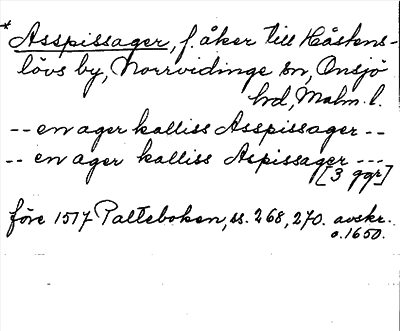 * Asspissager, f. åker till Håstens-
lövs by, Norrvidinge sn, Onsjö
hd, Malm. l.
-- en ager kalliss Asspissager --
-- en ager kalliss Aspissager ---
[3 ggr]
före 1517 Palteboken, ss. 268, 270. avskr.
o. 1650.